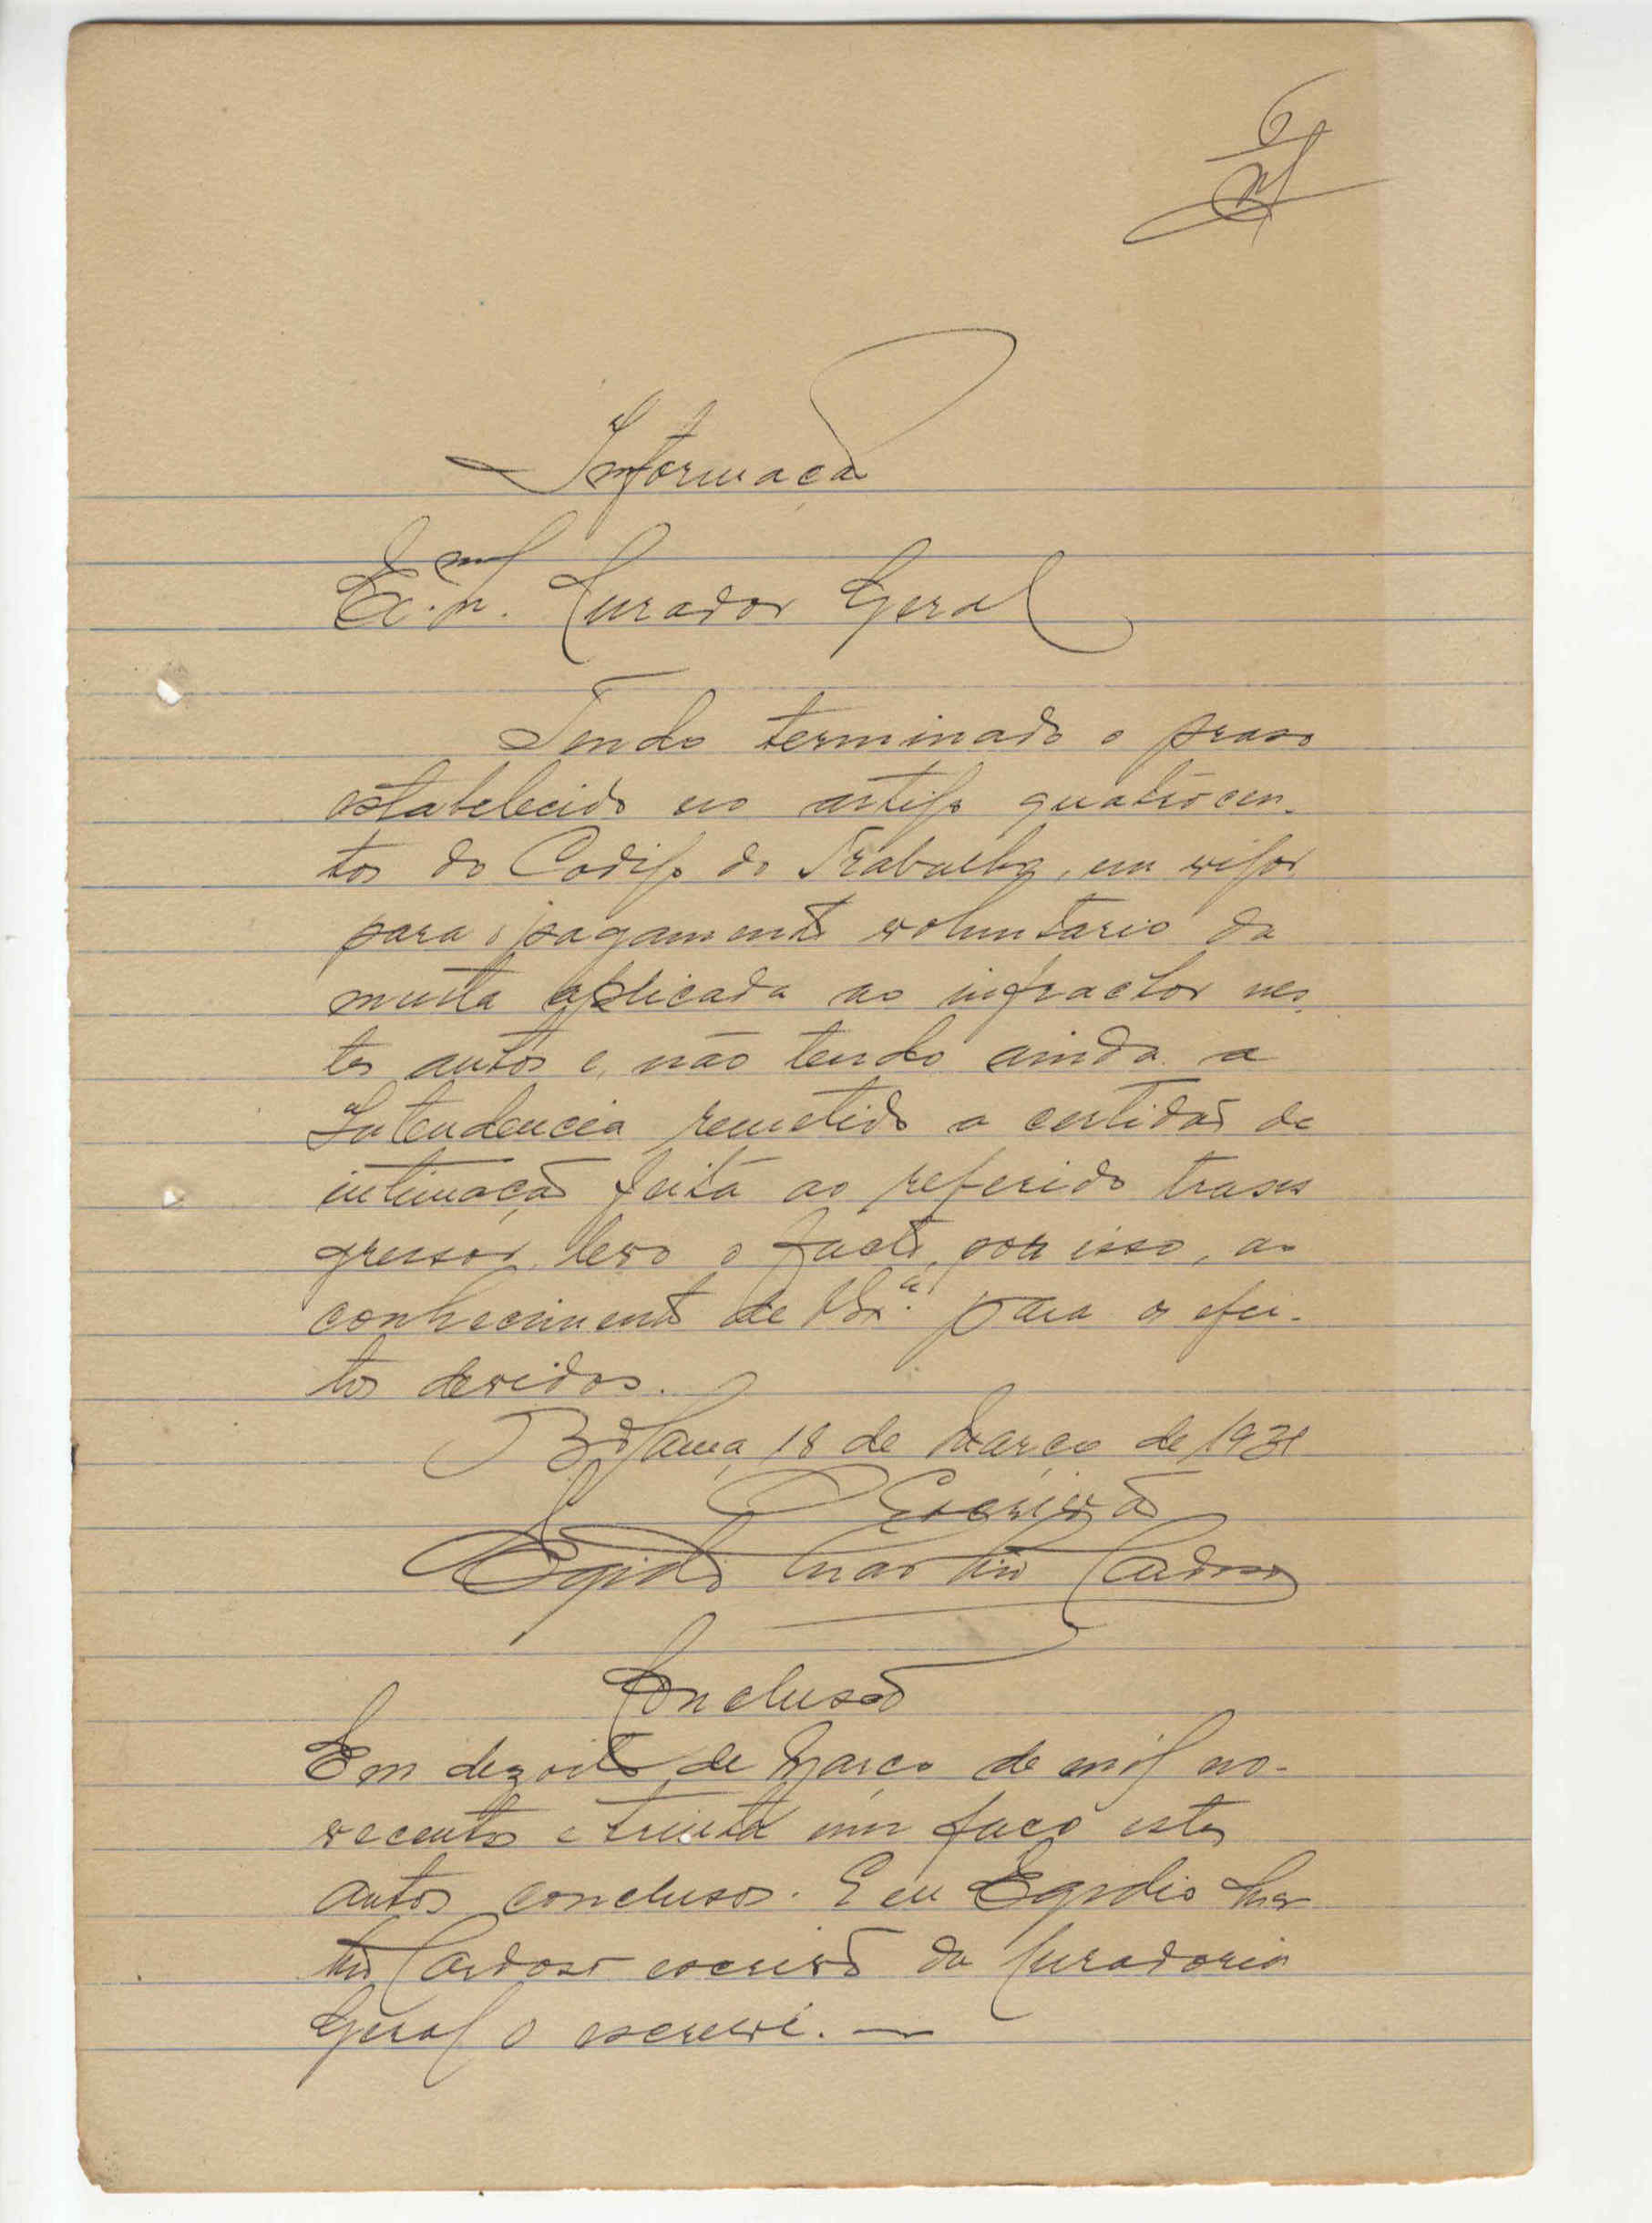 6
Informação
Ex.mo Curador Geral
Tendo terminado o praso
estabelecido no artigo quatrocen-
tos do Codigo do Trabalho, em vigor,
para o pagamento voluntario da
multa aplicada ao infractor nes-
tes autos e, não tendo ainda a
Intendencia remetido a certidão de
intimação feita ao referido trans
gressor, levo o facto, por isso, ao
conhecimento de V. Ex.ª para os efei-
tos devidos.
Bolama, 18 de Março de 1931
O Escrivão
Egidio Martins Cardoso
Conclusão
Em dezoito de Março de mil no-
vecentos e trinta um faço estes
autos conclusos. E eu Egidio Mar
tins Cardoso escrivão da Curadoria
Geral o escrevi. —